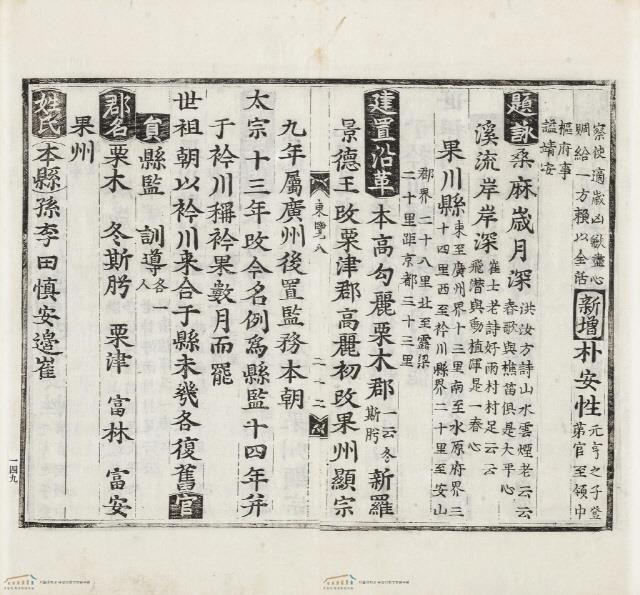 察使適歲凶獻盡心
賙給一方賴以全活
樞府事
諡靖安
新增朴安性元亨之子登
第官至領中
題詠桑麻歲月深洪汝方詩山水雲煙老云云
春歌與樵笛俱是大平心
溪流岸岸深崔士老詩好雨村村足云云
飛潛與動植渾是一春心
果川縣東至廣州界十三里南至水原府界三
十四里西至衿川縣界二十里至安山
郡界二十八里北至露梁
二十里距京都三十三里
建置沿革本高勾麗栗木郡一云冬
斯肹新羅
景德王改栗津郡高麗初改果州顯宗
東覽八
二一二
九年屬廣州後置監務本朝
太宗十三年改今名例爲縣監十四年幷
于衿川稱衿果數月而罷
世祖朝以衿川来合于縣未幾各復舊官
員縣監 訓導各一
人
郡名栗木 冬斯肹 栗津 富林 富安
果州
姓氏本縣孫李田愼安邊崔
一四九